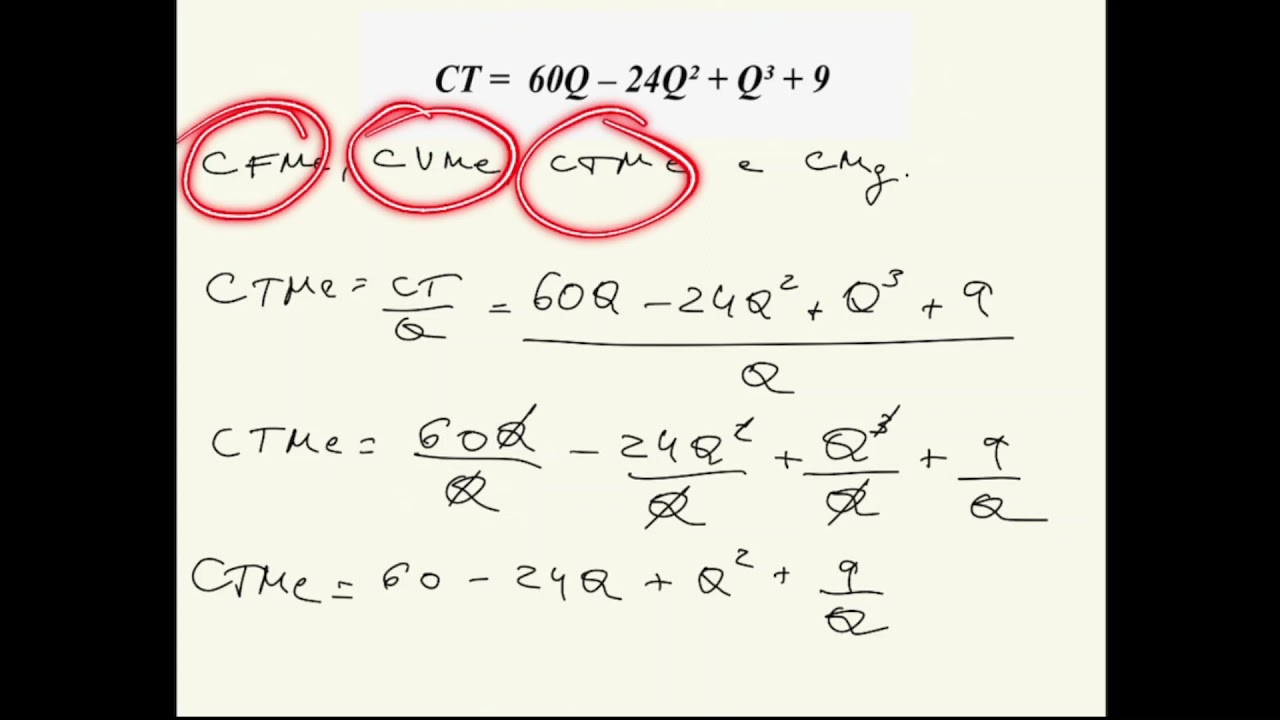 CT = 60Q – 24Q² + Q³ + 9
CFMe, CVMe CTMe e CMg.
CTMe = CT/Q = (60Q - 24Q² + Q³ + 9)/Q
CTMe = 60Q/Q - 24Q²/Q + Q³/Q + 9/Q
CTMe = 60 - 24Q + Q² + 9/Q